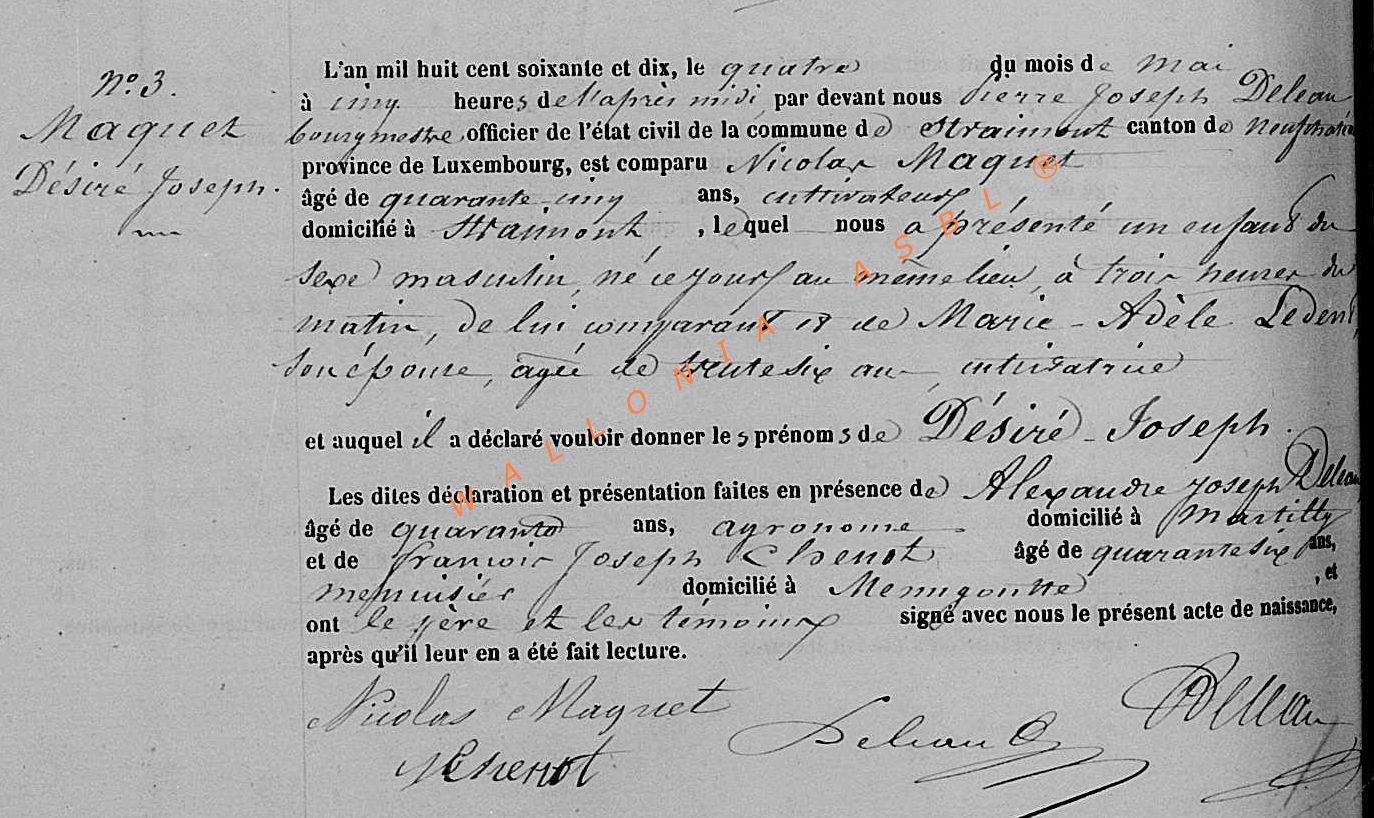 L'an mil huit cent soixante et dix, le quatre du mois de mai
N° 3.
à cinq heures de l'après midi, par devant nous Pierre Joseph Deleau
Maquet
bourgmestre officier de l'état civil de la commune de Straimont canton de Neufchateau
Désiré Joseph.
province de Luxembourg, est comparu Nicolas Maquet
âgé de quarante-cinq ans, cultivateur,
domicilié à Straimont, , lequel nous a présenté un enfant du
sexe masculin, né ce jour au même lieu, à trois heures du
matin, de lui comparant et de Marie-Adèle Ledent,
son épouse, agée de trente six ans cultivatrice
et auquel il a déclaré vouloir donner les prénoms de Désiré-Joseph.
Les dites déclaration et présentation faites en présence de Alexandre Joseph Deleau
âgé de quarante ans, agronome domicilié à Martilly
et de françois Joseph Chenot âgé de quarante six ans,
menuisier domicilié à Menugoutte , et
ont le père et les témoins signé avec nous le présent acte de naissance,
après qu'il leur en a été fait lecture.
Nicolas Maquet
Deleau
Deleau
Chenot
WALLONIA ASBL ®